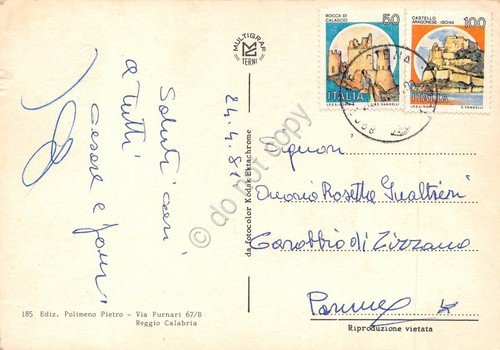 Saluti cari
a tutti
Cesare e
24.4.81
MULTIGRAF
TERNI
da fotocolor Kodak Ektachrome
ROCCA DI
CALASCIO
50
ITALIA
I.P.Z.S. ROMA E. VANGELLI
CASTELLO
ARAGONESE - ISCHIA
100
ITALIA
I.P.Z.S. ROMA E. VANGELLI
Signori
Rosetta Gualtieri
di Zizzano
Parma
Riproduzione vietata
185 Ediz. Polimeno Pietro - Via Furnari 67/B
Reggio Calabria
© do not copy